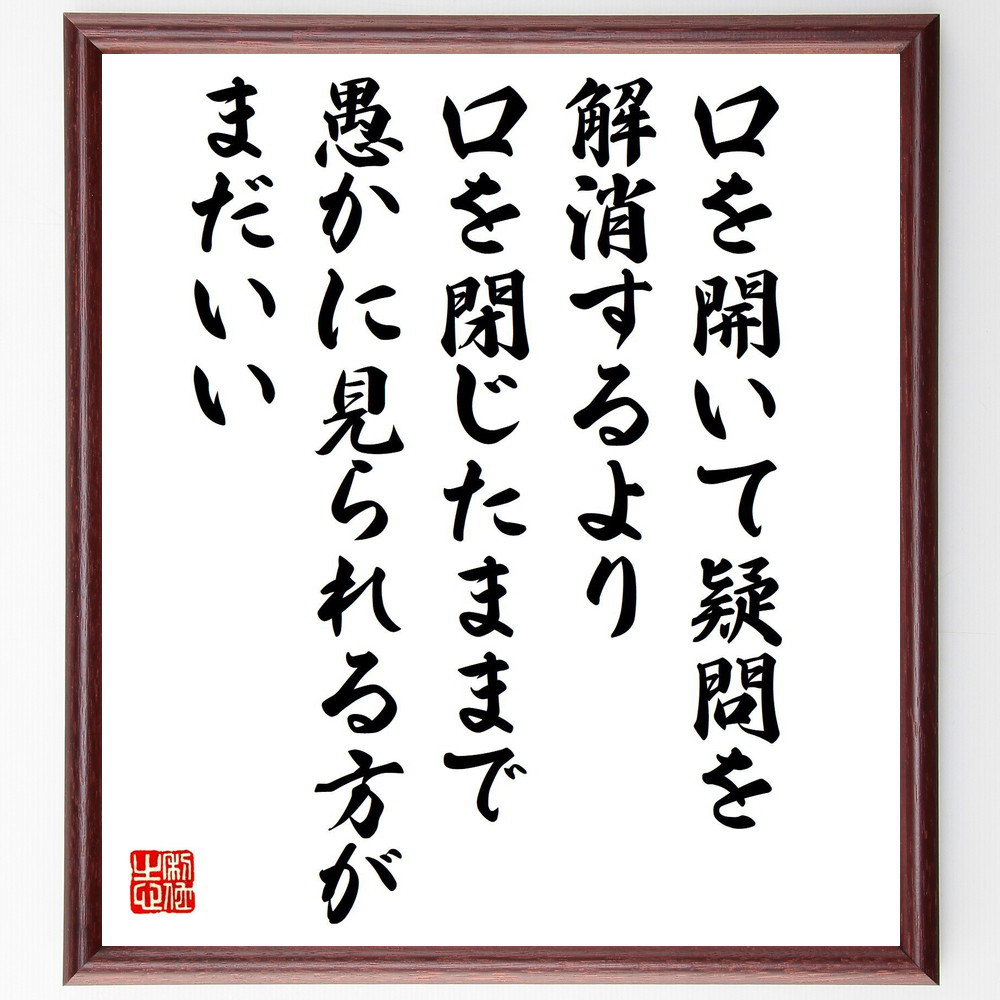 口を開いて疑問を
解消するより
口を閉じたままで
愚かに見られる方が
まだいい